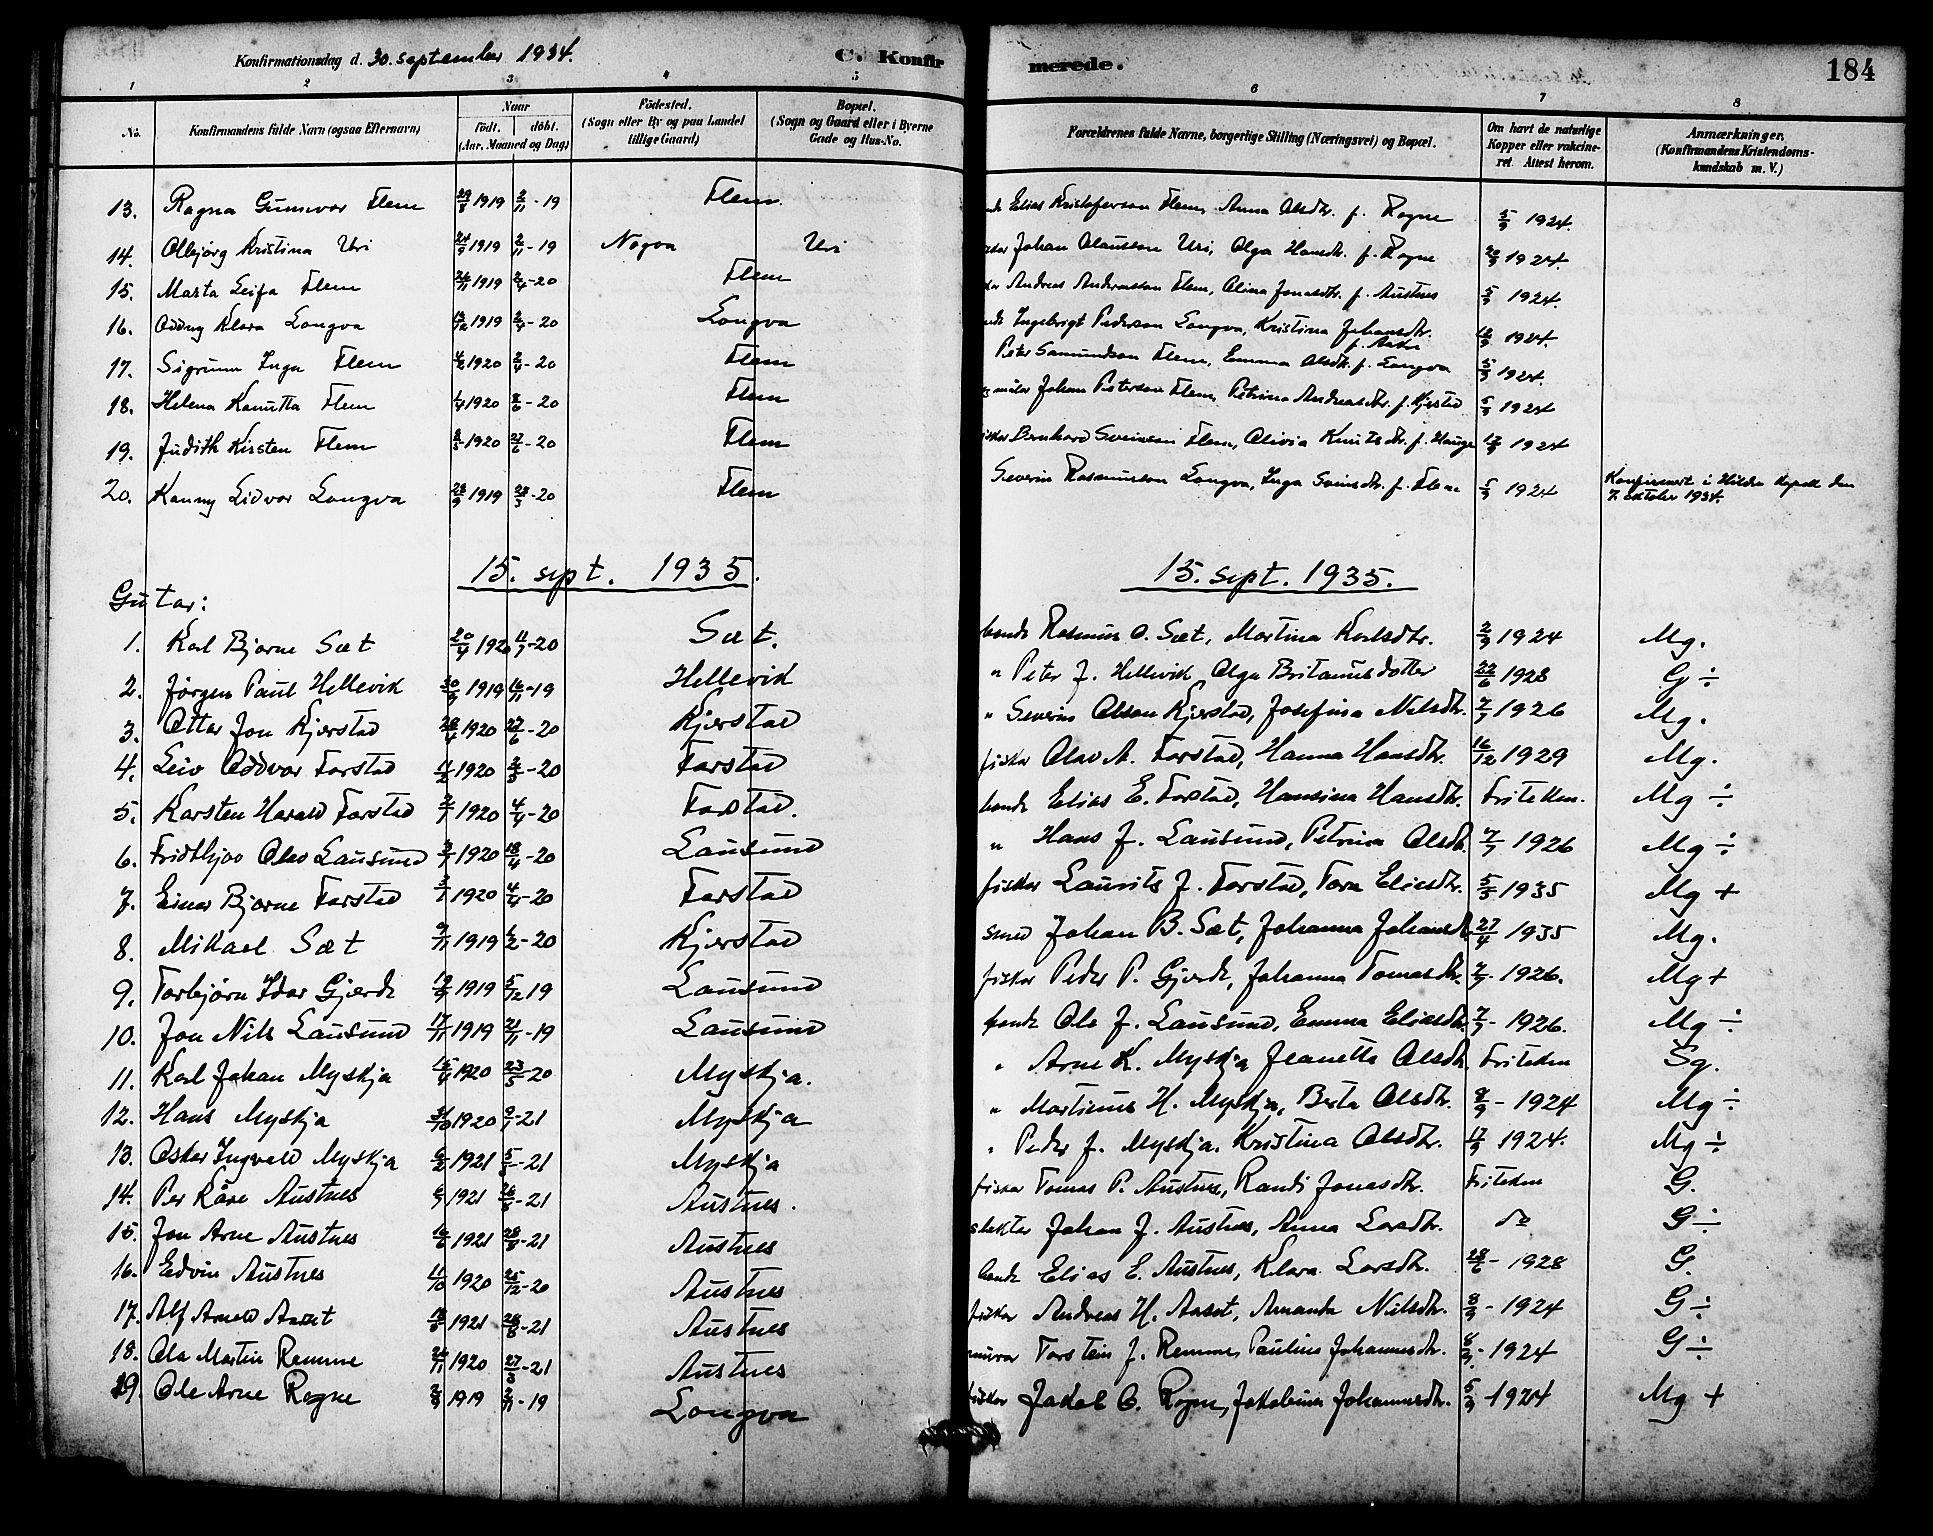 Konfirmationsdag d. 30. september 1934. C. Konfir merede. 184
1 2 3 4 5 6 7 8
No. Konfirmandens fulde Navn (ogsaa Efternavn) Naar født. døbt. (Aar, Maaned og Dag) Fødested. (Sogn eller By og paa Landet tillige Gaard) Bopæl. (Sogn og Gaard eller i Byerne Gade og Hus-No. Forældrenes fulde Navne, borgerlige Stilling (Næringsvei) og Bopæl. Om havt de naturlige Kopper eller vakcineret. Attest herom. Anmærkninger. (Konfirmandens Kristendomskundskab m. V.)
13. Ragna Gunvor Flem 29/8 1919 2/11 - 19 Flem Elias Kristofersen Flem, Anna Olsdtr. f. Rogne 5/9 1924.
14. Olbjørg Kristina Uri 24/9 1919 2/11 - 19 Nogva Uri Johan Olausson Uri, Olga Hansdtr. f. Rogne 20/9 1924.
15. Marta Leifa Flem 26/11 1919 2/4 - 20 Flem Andreas Andreassen Flem, Olina Jonasdtr. f. Austnes 5/9 1924.
16. Oddny Klara Longva 13/12 1919 2/4 - 20 Longva Ingebrigt Pedersen Longva, Kristina Johansdtr. 1924.
17. Sigrunn Inga Flem 4/2 1920 2/4 - 20 Flem Peter Samundsen Flem, Emma Olsdtr. f. Longva 5/9 1924.
18. Helena Kanutta Flem 1/4 1920 2/6 - 20 Flem måler Johan Petersen Flem, Petrina Andreasdtr. f. Kjerstad 5/9 1924
19. Judith Kirsten Flem 8/5 1920 27/6 - 20 Flem fisker Bernhard Sveinsen Flem, Olivia Knutsdtr. f. Hauge 17/9 1924
20. Kanny Lidvor Longva 28/9 1919 28/3 - 20 Flem Severin Rasmussen Longva, Inga Sveinsdtr. f. Flem 5/9 1924 Konfirmert i Hildre kapell den 7. oktober 1934.
15. sept. 1935. 15. sept. 1935.
Gutar:
1. Karl Bjarne Sæt 20/4 1920 11/7 - 20 Sæt. bonde Rasmus O. Sæt, Martina Karlsdtr. 2/9 1924 Mg.
2. Jørgen Paul Hellevik 30/9 1919 16/11 - 19 Hellevik " Peter J. Hellevik Olga Britanusdotter 22/6 1928 G ÷
3. Ottar Jon Kjerstad 28/4 1920 27/6 - 20 Kjerstad " Severin Olsen Kjerstad, Josefina Nilsdtr. 7/7 1926 Mg.
4. Leiv Oddvar Farstad 11/2 1920 2/5 - 20 Farstad fiskar Olav A. Farstad, Hanna Hansdtr. 16/12 1929 Mg.
5. Karsten Harald Farstad 2/1 1920 4/4 - 20 Farstad. bonde Elias E. Farstad, Hansina Hansdtr. Friteken. Mg ÷
6. Fridthjov Olav Lausund 3/1 1920 18/4 - 20 Lausund " Hans J. Lausund, Petrina Olsdtr. 7/7 1926 Mg ÷
7. Einar Bjarne Farstad 3/1 1920 4/4 - 20 Farstad fiskar Laurits J. Farstad, Tora Eliasdtr. 5/5 1935 Mg +
8. Mikael Sæt 9/11 1919 1/2 - 20 Kjerstad smed Johan B. Sæt, Johanna Johansdtr. 27/4 1935 Mg.
9. Torbjørn Idar Gjerde 19/9 1919 5/12 19 Lausund fiskar Peder P. Gjerde, Johanna Tomasdtr. 7/7 - 1926. Mg +
10. Jon Nils Lausund 17/11 1919 21/11 - 19 Lausund bonde Ola J. Lausund, Emma Eliasdtr. 7/7 - 1926. Mg ÷
11. Karl Johan Myskja 15/4 1920 23/5 - 20 Myskja. " Arne K. Myskja Jeanetta Olsdtr. Friteken Sg.
12. Hans Myskja 31/10 1920 9/1 - 21 Myskja " Martinus H. Myskja, Berta Olsdtr. 8/9 - 1924 Mg ÷
13. Oskar Ingvald Myskja 6/2 1921 5/5 - 21 Myskja " Peder J. Myskja. Kristina Olsdtr. 17/9 1924. Mg ÷
14. Per Kåre Austnes 6/1 1921 26/5 - 21 Austnes. fiskar Tomas P. Austnes, Randi Jonasdtr. Friteken G.
15. Jon Arne Austnes 16/6 1921 28/8 - 21 Austnes Johan J. Austnes, Anna Larsdtr. do G ÷
16. Edvin Austnes 11/10 1920 25/12 - 20 Austnes bonde Elias E. Austnes, Klara Larsdtr. 28/6 - 1928 G.
17. Alf Arnold Aaset 1921 28/8 - 21 Austnes fiskar Andreas H. Aaset, Amanda Nilsdtr. 8/9 - 1924 G ÷
18. Ola Martin Remme 20/11 1920 27/3 - 21 Austnes murar Torstein J. Remme, Pauline Johannesdtr. 8/9 - 1924 G ÷
19. Ole Arne Rogne 3/9 1919 2/11 - 19 Longva fiskar Jakob O. Rogne, Jakobina Johannesdtr. 5/9 - 1924 Mg +